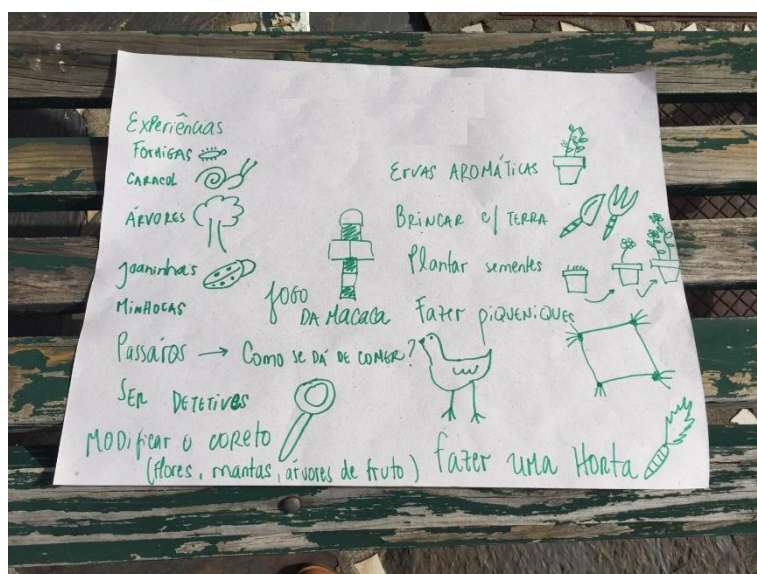 Experiências
FORMIGAS
CARACOL
ÁRVORES
Joaninhas
MINHOCAS
JOGO
DA MACACA
Passáros → Como SE DÁ DE COMER?
SER DETETIVES
MODificar o coreto
(flores, mantas, árvores de fruto)
ERVAS AROMÁTICAS
BRINCAR c/ TERRA
Plantar sementes
Fazer piqueniques
fazer uma Horta